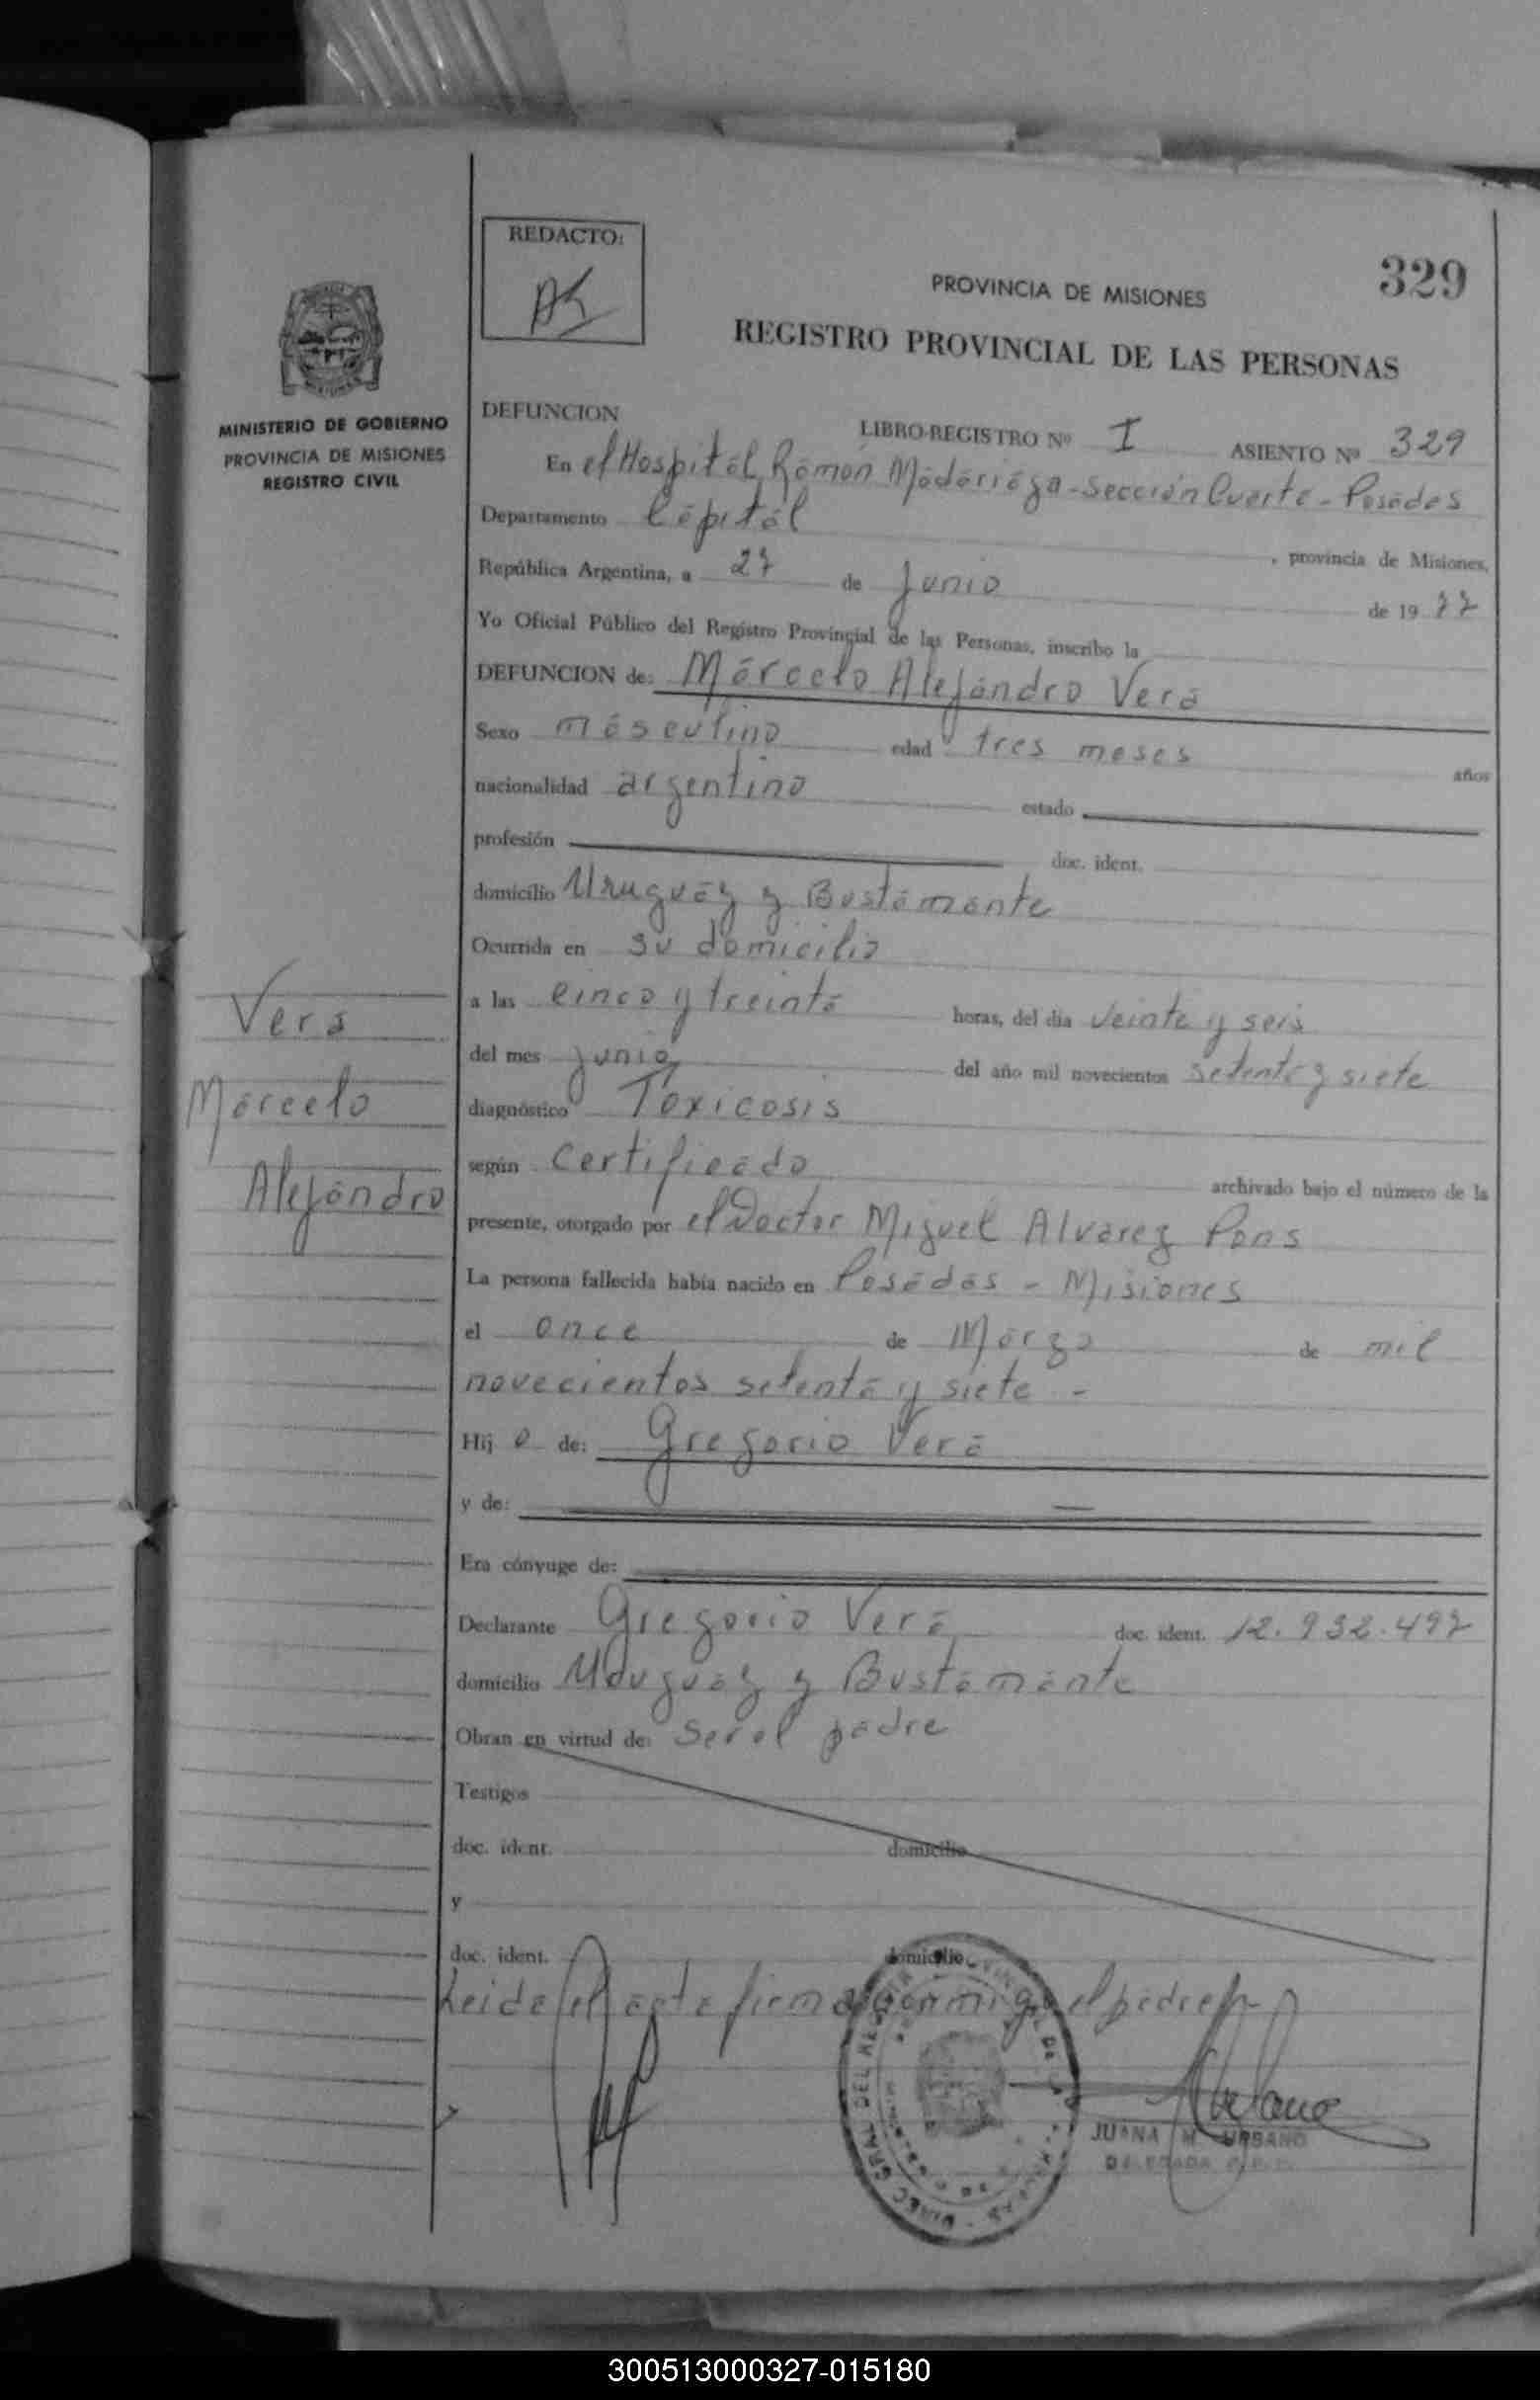 REDACTO:
PROVINCIA DE MISIONES
329
REGISTRO PROVINCIAL DE LAS PERSONAS
MINISTERIO DE GOBIERNO
PROVINCIA DE MISIONES
REGISTRO CIVIL
DEFUNCION LIBRO-REGISTRO Nº I ASIENTO Nº 329
En el Hospital Ramón Madariaga - Sección Cuarta - Posadas
Departamento Capital, provincia de Misiones,
República Argentina, a 27 de Junio de 1977
Yo Oficial Público del Registro Provincial de las Personas, inscribo la
DEFUNCION de: Marcelo Alejandro Vera
Sexo masculino edad tres meses años
nacionalidad argentino estado
profesión doc. ident.
domicilio Uruguay y Bustamante
Ocurrida en su domicilio
a las cinco y treinta horas, del día veinte y seis
del mes junio del año mil novecientos setenta y siete
diagnóstico Toxicosis
según certificado archivado bajo el número de la
presente, otorgado por el Doctor Miguel Alvarez Pons
La persona fallecida había nacido en Posadas - Misiones
el once de Marzo de mil
novecientos setenta y siete -
Hijo de: Gregorio Vera
y de:
Era cónyuge de:
Declarante Gregorio Vera doc. ident. 12.932.497
domicilio Uruguay y Bustamante
Obran en virtud de: Ser el padre
Testigos
doc. ident. domicilio
y
doc. ident. domicilio
Leida el acta firma conmigo el padre
JUANA M. URBANO
DELEGADA
Vera
Marcelo
Alejandro
300513000327-015180